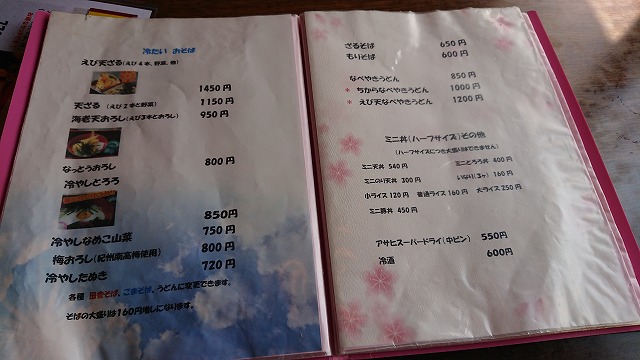 冷たい おそば
えび天ざる(えび4本、野菜、他)
1450円
天ざる (えび2本と野菜) 1150円
海老天おろし(えび3本とおろし) 950円
なっとうおろし 800円
冷やしとろろ
850円
冷やしなめこ山菜 750円
梅おろし(紀州南高梅使用) 800円
冷やしたぬき 720円
各種 田舎そば、ごまそば、うどんに変更できます。
そばの大盛りは160円増しになります。
ざるそば 650円
もりそば 600円
なべやきうどん 850円
* ちからなべやきうどん 1000円
* えび天なべやきうどん 1200円
ミニ丼(ハーフサイズ)その他
(ハーフサイズにつき大盛りはできません)
ミニ天丼 540円 ミニとろろ丼 400円
ミニのり天丼 300円 いなり(3ヶ) 160円
小ライス 120円 普通ライス 160円 大ライス 250円
ミニ豚丼 450円
アサヒスーパードライ(中ビン) 550円
冷酒 600円